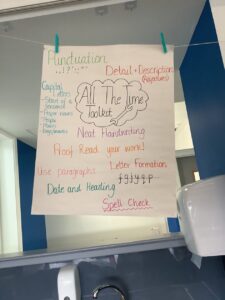 Punctuation
. , ! ? : ; " "
Detail + Description
Capital
letters
- Start of a
sentence
- Proper nouns
All The Time
Toolkit
Neat Handwriting
Proof Read your work!
Use paragraphs
Letter Formation
f g j y q p
Date and Heading
Spell Check